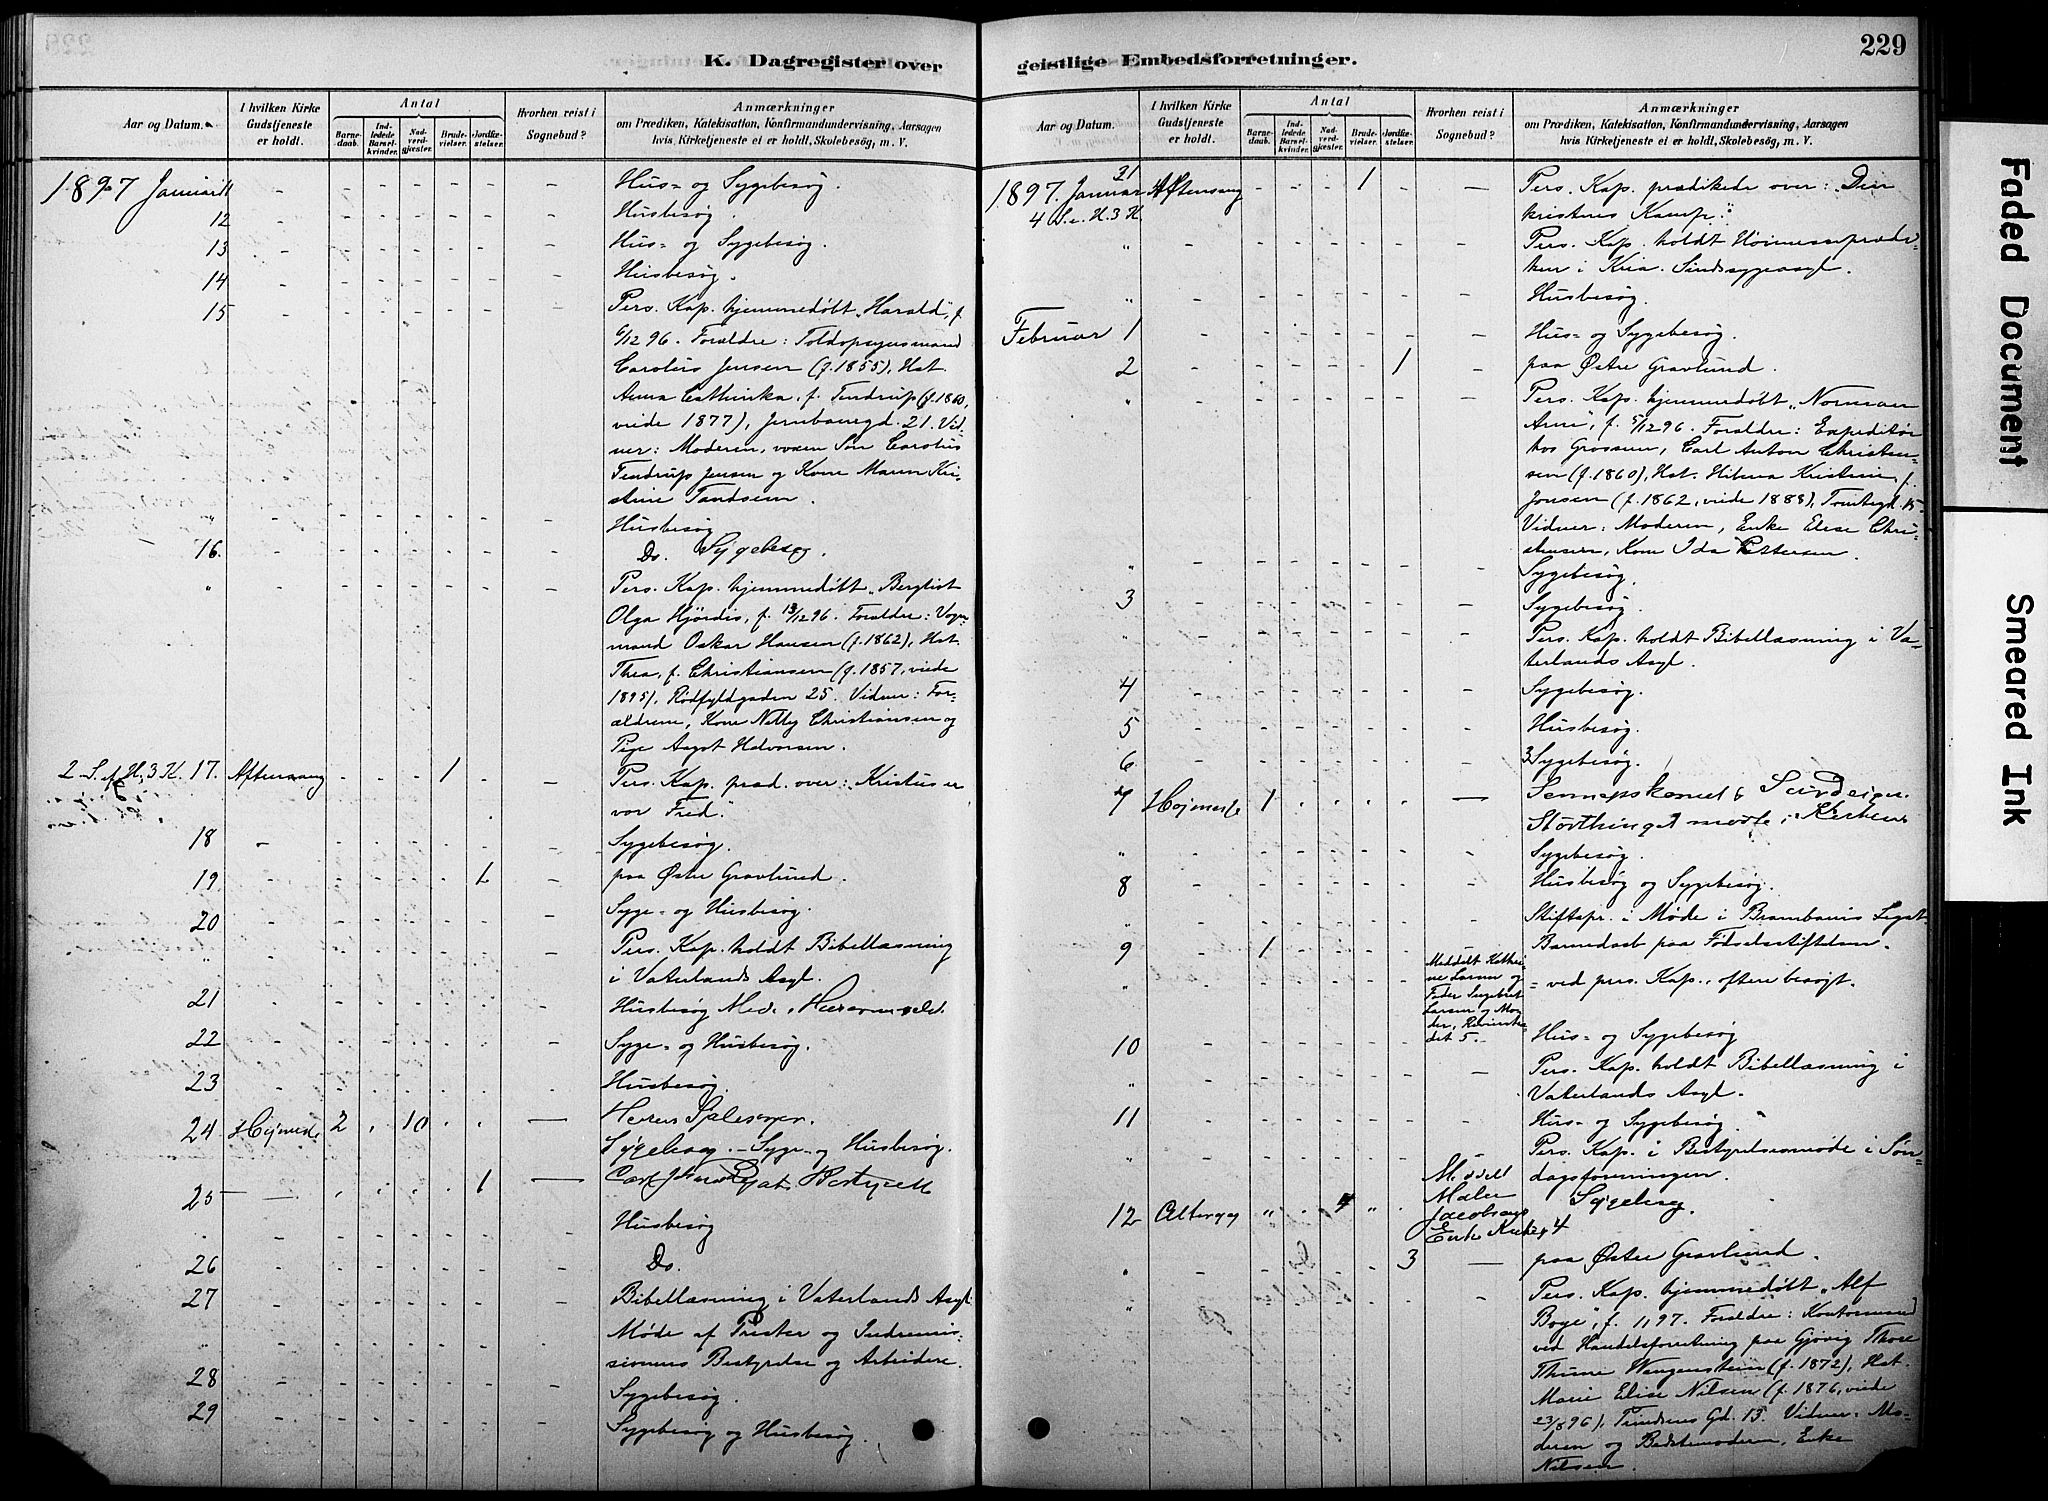 229
K. Dagregister over
geistlige Embedsforretninger.
Aar og Datum.
I hvilken Kirke Gudstjeneste er holdt.
Antal
Barnedaab.
Indledede Barselkvinder.
Nadverdgjæster.
Brudevielser.
Jordfæstelser.
Hvorhen reist i Sognebud?
Anmærkninger
om Prædiken, Katekisation, Konfirmandundervisning, Aarsagen
hvis Kirketjeneste ei er holdt, Skolebesøg, m. V.
1897 Januar 11 - - - - - - - Hus- og Sygebesøg.
12 - - - - - - - Husbesøg.
13 - - - - - - - Hus- og Sygebesøg.
14 - - - - - - - Husbesøg.
15 - - - - - - - Pers. Kap. hjemmedøbt "Harald", f.
6/12 96. Forældre: Toldopsynsmand
Carolius Jensen (f. 1855), Hst.
Anna Cathinka, f. Tendrup (f. 1860,
viede 1877), Jernbanegd. 21. Vid-
ner: Moderen, voxen Søn Carolius
Tendrup Jensen og Kone Maren Kri-
stine Tandsem.
" - - - - - - - Husbesøg
16. - - - - - - - Do. Sygebesøg.
" - - - - - - - Pers. Kap. hjemmedøbt "Bergliot
Olga Hjørdis, f. 13/12 96. Forældre: Vogn-
mand Oskar Hansen (f. 1862), Hst.
Thea, f. Christiansen (f. 1857, viede
1895), Rødfyldgaden 25. Vidner: For-
ældrene, Kone Nelly Christiansen og
Pige Aagot Halvorsen.
2 S. e. H. 3 K. 17. Aftensang - - - 1 - - Pers. Kap. præd. over: "Kristus er
vor Fred."
18 - - - - - - - Sygebesøg.
19 - - - - - 1 - paa Østre Gravlund.
20 - - - - - - - Syge- og Husbesøg.
" - - - - - - - Pers. Kap. holdt Bibellæsning
i Vaterlands Asyl.
21 - - - - - - - Husbesøg
22 - - - - - - - Syge- og Husbesøg.
23 - - - - - - - Husbesøg.
24 Højmesse 2 . 10 . . —
Sygebesøg. - Syge- og Husbesøg.
25 — . . . . 1 —
. - - - - - - - Husbesøg
26 - - - - - - - Do.
27 - - - - - - - Bibellæsning i Vaterlands Asyl.
" - - - - - - - Møde af Prester og Indremis-
sionens Bestyrelse og Arbeidere.
28 - - - - - - - Sygebesøg.
29 - - - - - - - Sygebesøg og Husbesøg.
Aar og Datum.
I hvilken Kirke Gudstjeneste er holdt.
Antal
Barnedaab.
Indledede Barselkvinder.
Nadverdgjæster.
Brudevielser.
Jordfæstelser.
Hvorhen reist i Sognebud?
Anmærkninger
om Prædiken, Katekisation, Konfirmandundervisning, Aarsagen
hvis Kirketjeneste ei er holdt, Skolebesøg, m. V.
1897. Januar 31 Aftensang - - - 1 - - Pers. Kap. prædikede over: "Den
4 S. e. H. 3 K. kristnes Kamp."
" - - - - - - - Pers. Kap. holdt Høimesseprædi-
ken i Kria. Sindssygeasyl.
" - - - - - - - Husbesøg.
Februar 1 - - - - - - - Hus- og Sygebesøg.
2 - - - - - 1 - paa Østre Gravlund.
" - - - - - - - Pers. Kap. hjemmedøbt "Norman
Arne", f. 5/12 96. Forældre: Expeditør
hos Grosserer, Carl Anton Christen-
sen (f. 1860), Hst. Hilma Kristine, f.
Jonsen (f. 1862, viede 1888), Tomtegd. 15.
Vidner: Moderen, Enke Elise Chri-
stensen, Kone Ida Pettersen.
" - - - - - - - Sygebesøg.
3 - - - - - - - Sygebesøg.
" - - - - - - - Pers. Kap. holdt Bibellæsning i Va-
terlands Asyl.
4 - - - - - - - Sygebesøg.
5 - - - - - - - Husbesøg.
6 - - - - - - - 3 Sygebesøg.
7 Højmesse 1 . . . . — Sennepskornet & Surdeigen.
Storthinget mødte i Kirken
" - - - - - - - Sygebesøg.
8 - - - - - - - Husbesøg og Sygebesøg.
" - - - - - - - Stiftspr. i Møde i Brambanis Legat
9 - 1 - - - - Barnedaab paa Fødselsstiftelsen.
" - - - - - - Meddelt Kathri-
ne Larsen og
Fader Ingebret
Larsen og Mo-
der,
det 5. = ved pers. Kap., oftere besøgt.
Hus- og Sygebesøg
10 - - - - - -
" - - - - - - - Pers. Kap. holdt Bibellæsning i
Vaterlands Asyl.
11 - - - - - - - Hus- og Sygebesøg.
" - - - - - - - Pers. Kap. i Bestyrelsesmøde i Søn-
dagsforeningen.
12 Altergang " . 4 " . Meddelt
Maler
Jacobsens
Enke 4 Sygebesøg.
" - - - - 3 — paa Østre Gravlund.
" - - - - - - - Pers. Kap. hjemmedøbt "Alf
Boye", f. 1/1 97. Forældre: Kontormand
ved Handelsforretning paa Gjøvig Thore
Thune Wangensteen (f. 1872), Hst.
Marie Elise Nilsen (f. 1876, viede
23/8 96), Trondhens Gd. 13. Vidner: Mo-
deren og Bedstemoderen, Enke
Nilsen.
Faded Document
Smeared Ink